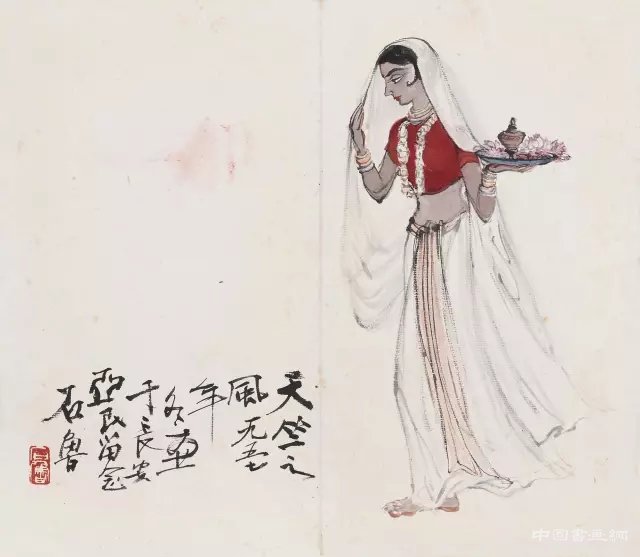 天竺之
風一九五七
年
冬画
于長安
亞民留念
石魯
中国書画網